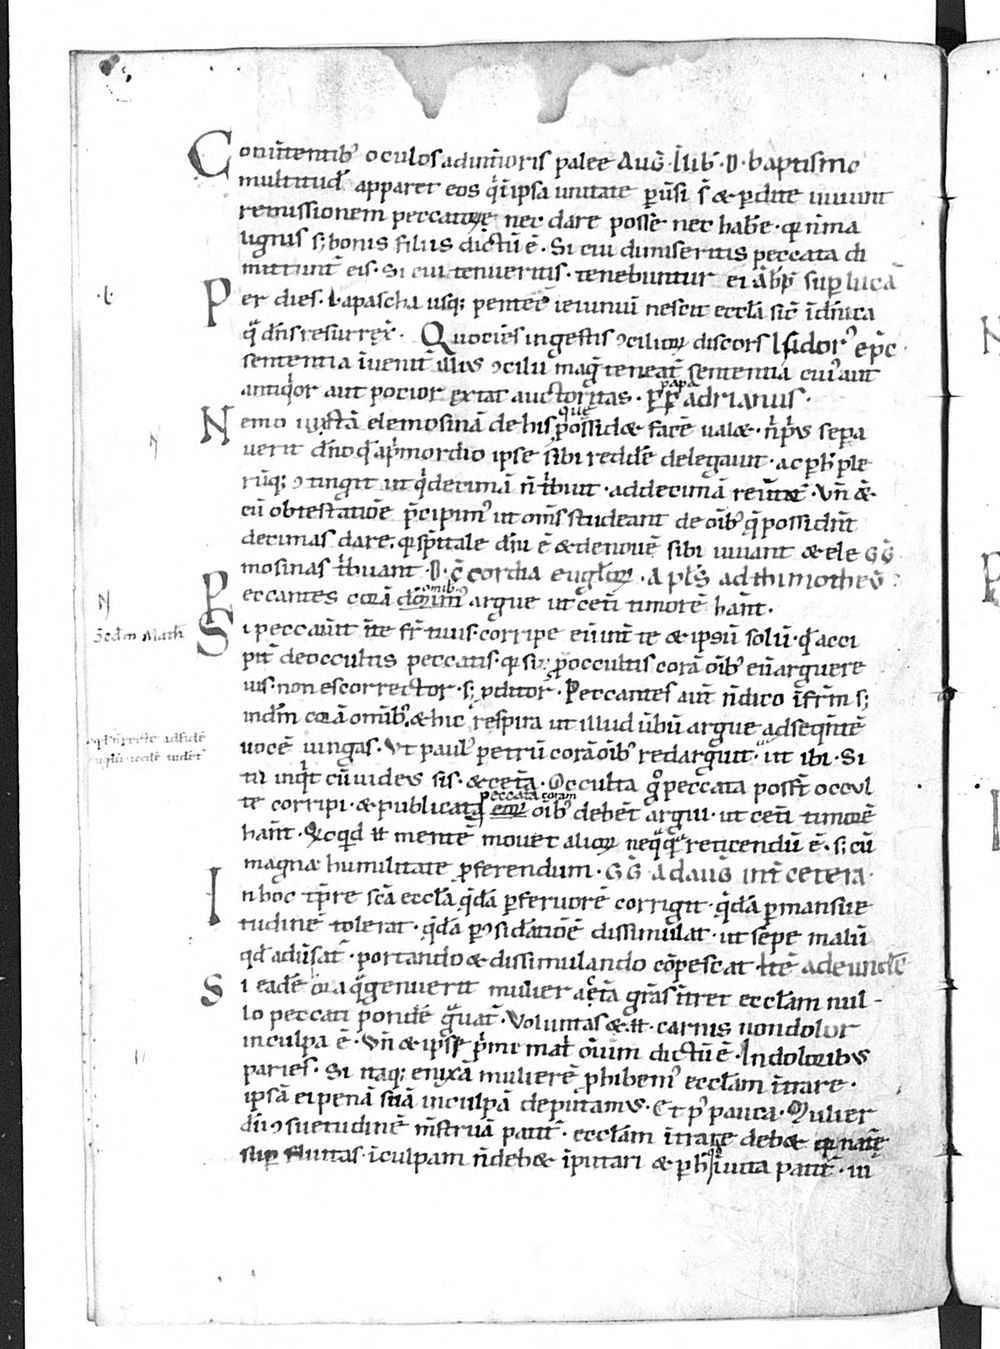 Conuertentib' oculos ad interioris palee Aug̃. lib̃. D. baptismo
multitud̃ apparet eos q̃ ipsa unitate puersi s̃ & perdite uiuunt
remissionem peccatorum nec dare posse nec hab̃e. q̃ n̄ ma
lignis s; bonis filiis dictũ ẽ. Si cui dimiseritis peccata di
mittunt̃ eis. Si cui tenueritis. tenebuntur ei Ãb̃ sup lucã
Per dies. L. a pascha usq; pentec̃ ieiuniũ nescit ecclã sic̃ ĩ dñica
q̃ dñs resurrex̃. Quociens in gestis ɔciliorum discors Isidor' ep̃c.
sententia ĩuenit̃ illius ɔcilii mag̃ teneat̃ sententia cui' aut
antiq̃or aut pocior extat auctoritas. papa adrianus.
Nemo iustã elemosinã de his que possid& face ual&. ñ p̃us sepa
uerit dñoq̃ a p̃mordio ipse sibi redde delegauit. ac p h̃ ple
rũq; ɔtingit ut q̃ decimã ñ t̃buit. ad decimã reũtat̃. Vñ &
cũ obtestatiõe p̃cipim' ut om̃s studeant de oĩb' q̃ possidẽt
decimas dare. q̃ sp̃itale dñi ẽ & de nouẽ sibi uiuant & ele GG̃
mosinas t̃buant. D. cordia eugl̃orum. Apl̃s ad thimotheũ
Peccantes corã omib' argue ut cet̃i timorẽ hañt.
Scdm Math̃
Si peccauit ĩte fr̃ tuus. corripe eũ int̃ te & ipsũ solũ. q̃d acci
pit̃ de occultis peccatis. q̃ si p̃ occultis corã oĩb' eũ arguere
uis. non es corrector. s; pditor. Peccantes aut̃ ñ dico ĩ frm̃ s;
ĩndm̃ corã omnib', & hic respira ut illud ũbũ argue adseq̃ntẽ
uocẽ iungas. Vt paul' petrũ corã oĩb' redarguit. ut ibi. Si
tu inq̃t cũ iudeus sis. & cetã. Occulta g̊ peccata poss̃t occul
te corripi. & publicata peccata coram oĩb' debẽt argui. ut cet̃i timorẽ
hañt. & qd̃ mentẽ mouet aliorum neq̃q̃ reticendũ ẽ. s; cũ
magna humilitate p̃ferendum. GG̃ Ad aug̃ int̃ cetera.
In hoc tp̃re sc̃a ecclã q̃dã p̃ feruorẽ corrigit. q̃dã p mansue
tudinẽ tolerat. q̃dã p ɔsid̃atiõẽ dissimulat. ut sepe malũ
qd̃ adũsat̃. portando & dissimulando cõpescat. Itẽ ad eundẽ
Si eadẽ ora q̃ genuerit mulier actã gr̃as ĩtret ecclãm nul-
lo peccati pondẽ g̃uat̃. Voluntas &. carnis non dolor
in culpa ẽ. Vñ & ipse p̃me mat̃ oĩum dictũ ẽ. In doloribus
paries. Si itaq; enixã mulierẽ phibem' ecclãm ĩtrare.
ipsã ei penã suã in culpã deputamus. Et p' pauca. Mulier
dũ ɔsuetudinẽ mẽstruã patit̃. ecclãm ĩtrare deb& q̃ nat̃ẽ
sup̃fluitas. ĩ culpam ñ deb& ĩputari & p h̃ q̃ ĩuita patit̃. in